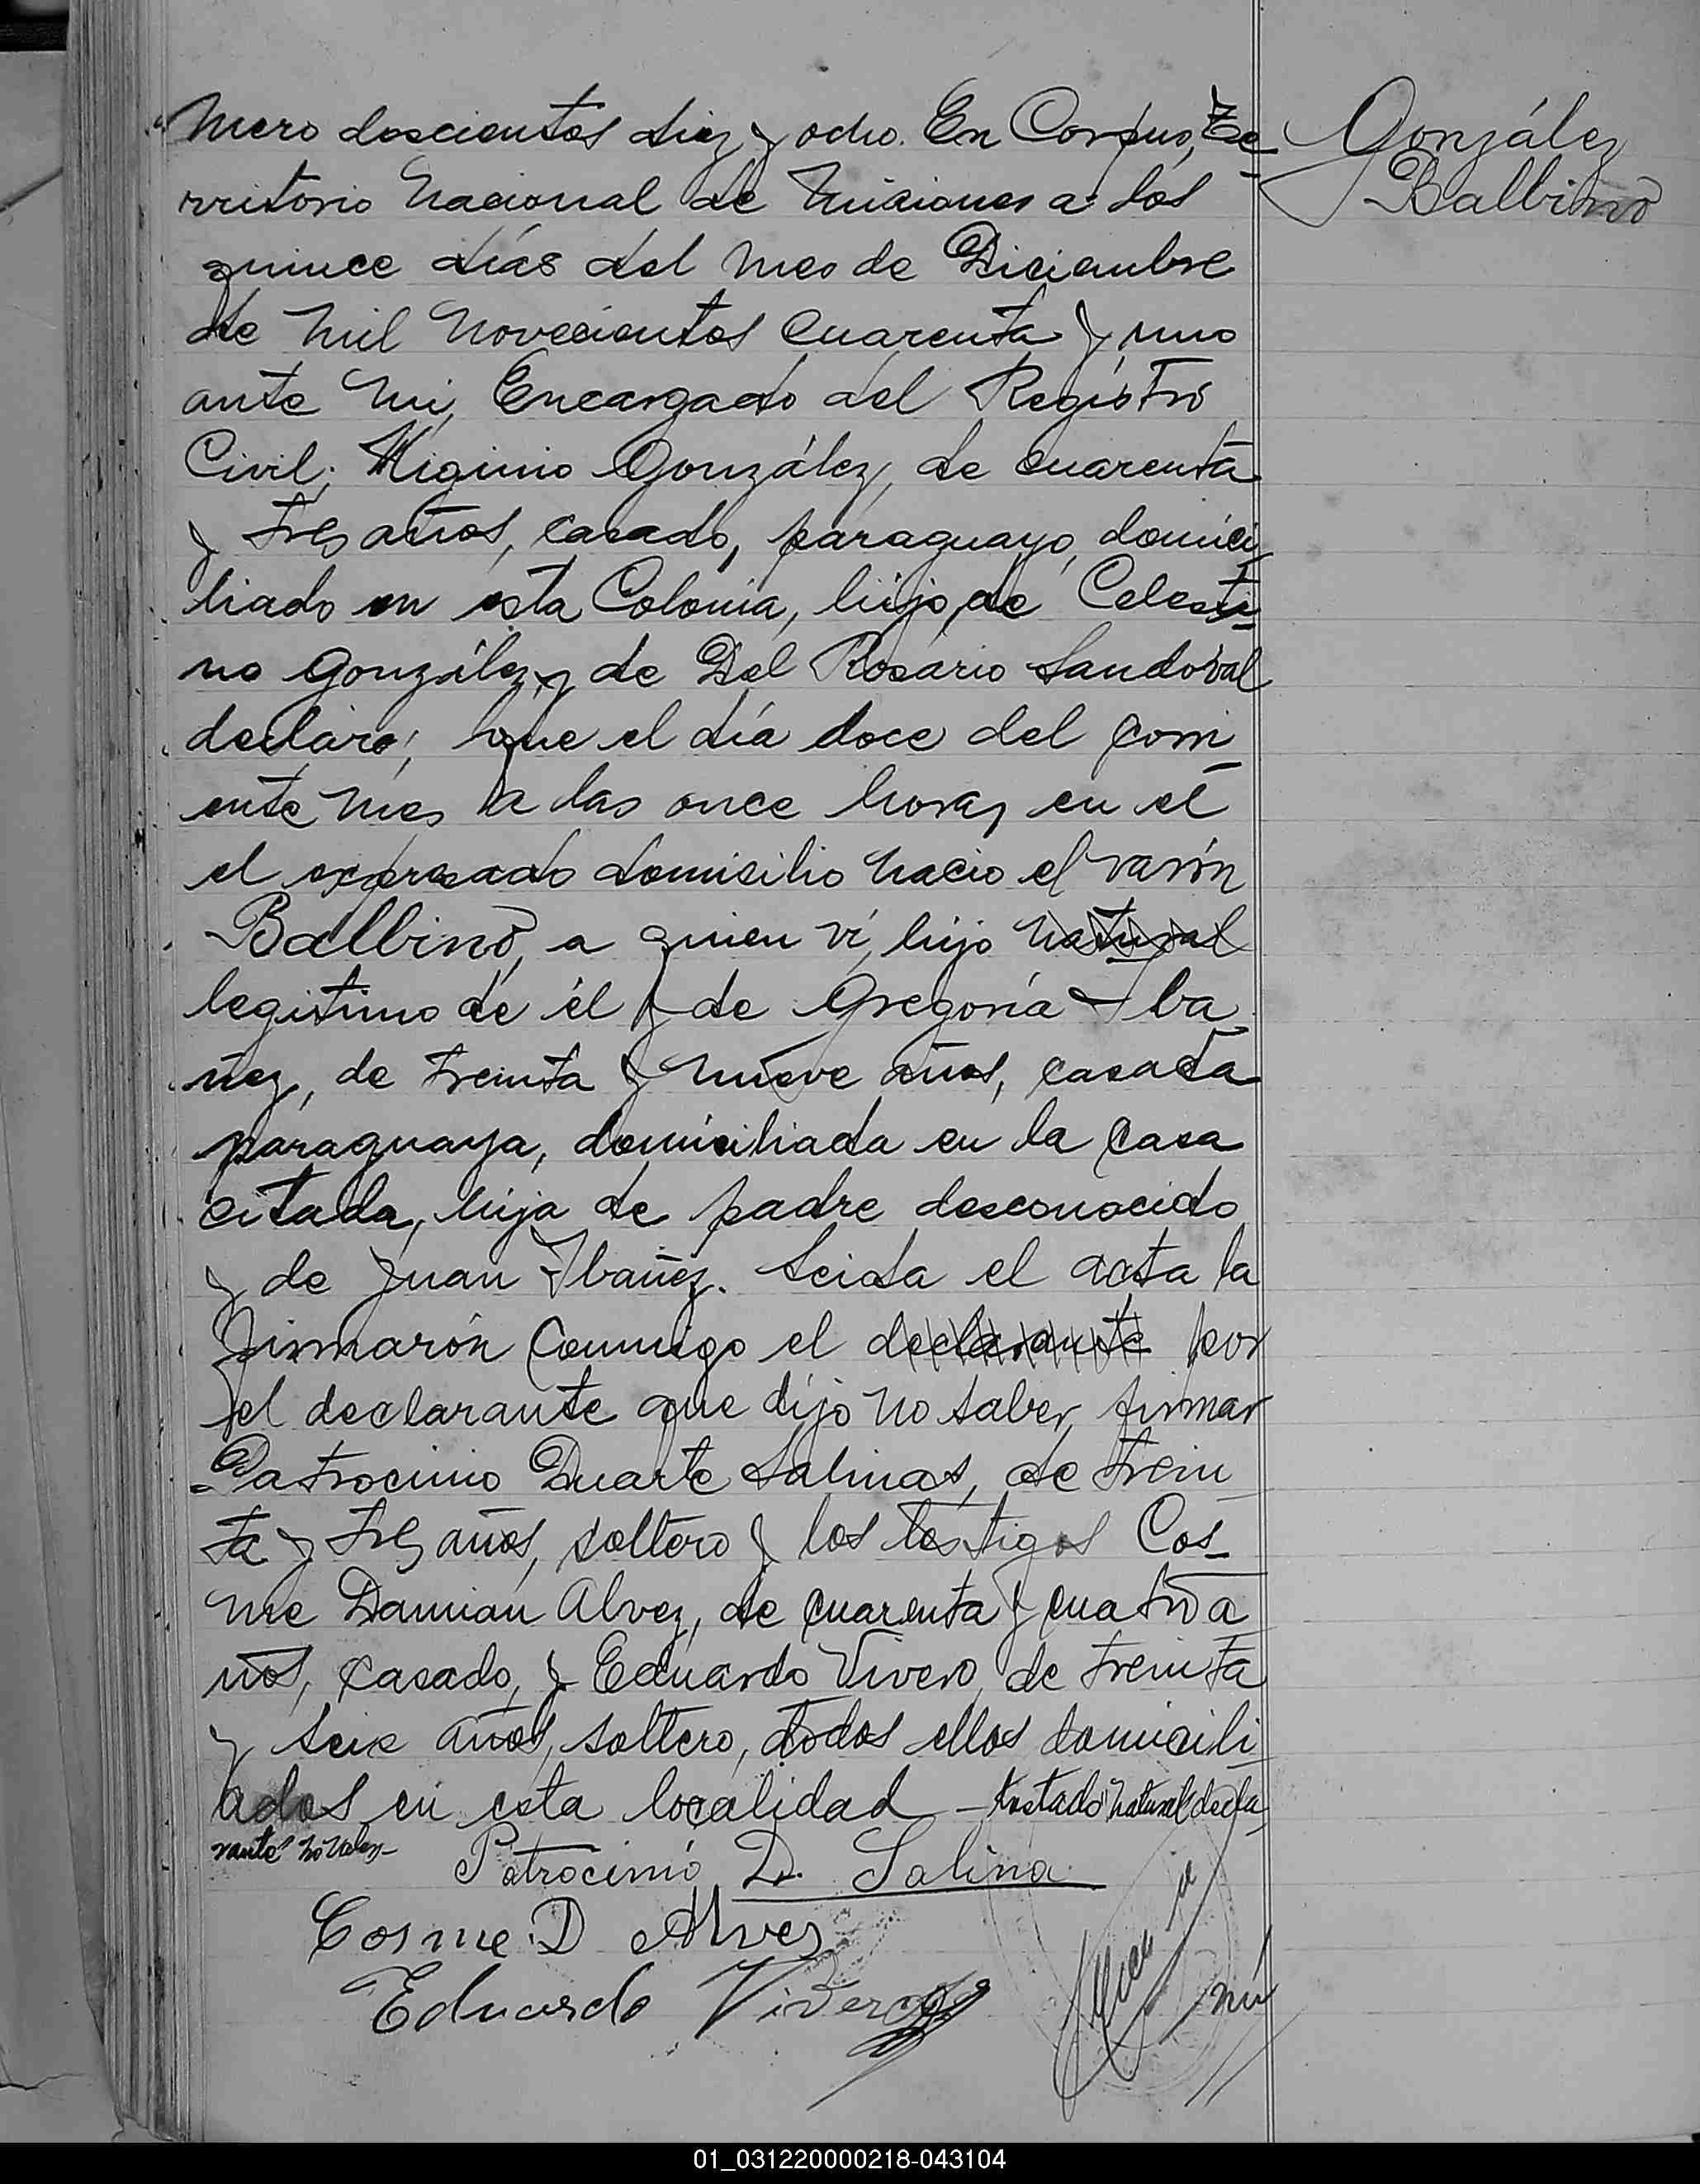 Número doscientos diez y ocho. En Corpus, Te
González
rritorio Nacional de Misiones a los
Balbino
quince días del mes de Diciembre
de mil novecientos cuarenta y uno
ante mi, Encargado del Registro
Civil; Higinio González, de cuarenta
y tres años, casado, paraguayo, domici
liado en esta Colonia, hijo de Celesti
no González y de Del Rosario Sandoval
declaró; que el día doce del corri
ente mes a las once horas en el
el expresado domicilio nacio el varón
Balbino, a quien ví, hijo natural
legitimo de él y de Gregoria Iba
ñez, de treinta y nueve años, casada
paraguaya, domiciliada en la casa
citada, hija de padre desconocido
y de Juan Ibañez. Leida el acta la
firmarón conmigo el declarante por
el declarante que dijo no saber firmar
Patrocinio Duarte Salinas, de trein
ta y tres años, soltero y los testigos Cos_
me Damian Alvez, de cuarenta y cuatro a
ños, casado, y Eduardo Vivero, de treinta
y seis años, soltero, todos ellos domicili
ados en esta localidad - testado natural decla
rante no valen-
Patrocinio D. Salina
Cosme D Alves
Eduardo Vivero
01_031220000218-043104